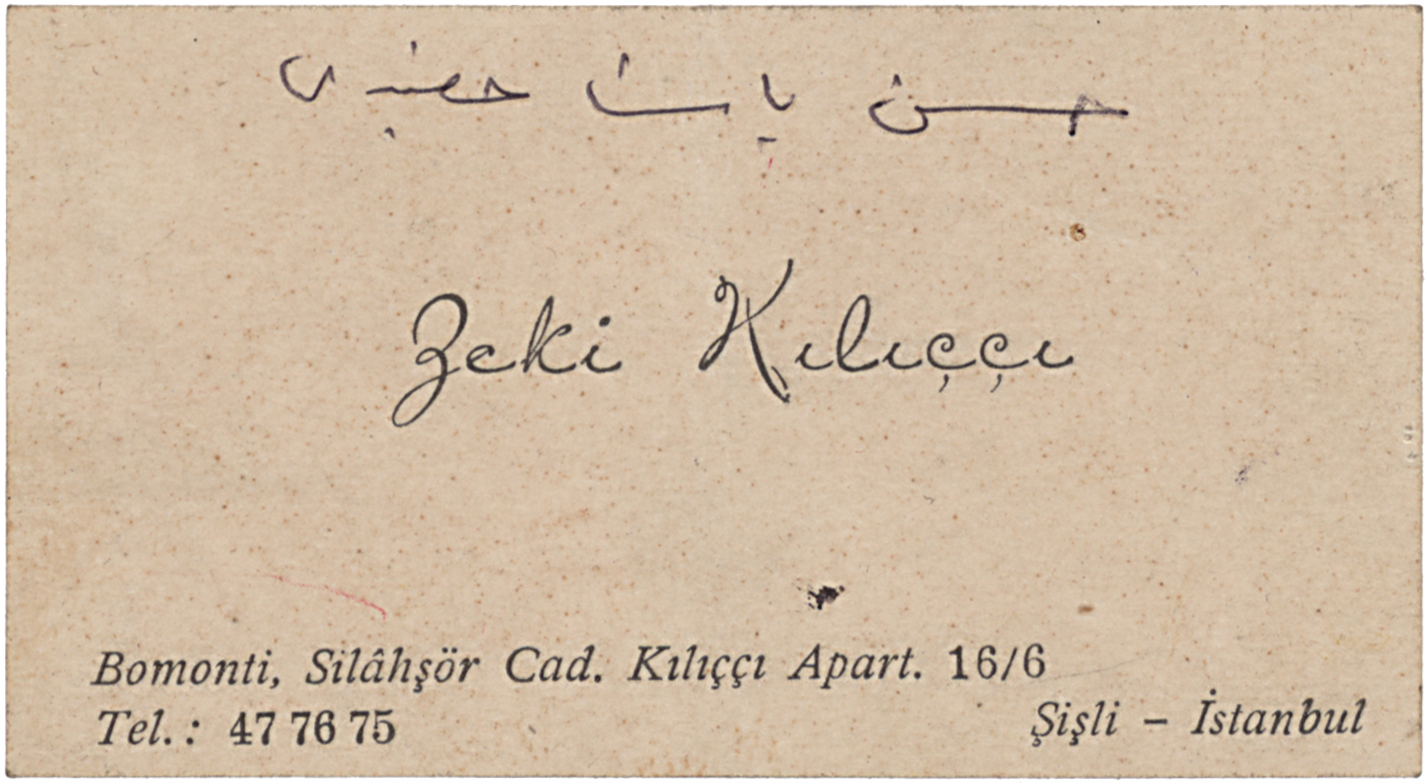 حسن پاشا حفيدی
Zeki Kılıççı
Bomonti, Silâhşör Cad. Kılıççı Apart. 16/6
Tel. : 47 76 75 Şişli – İstanbul